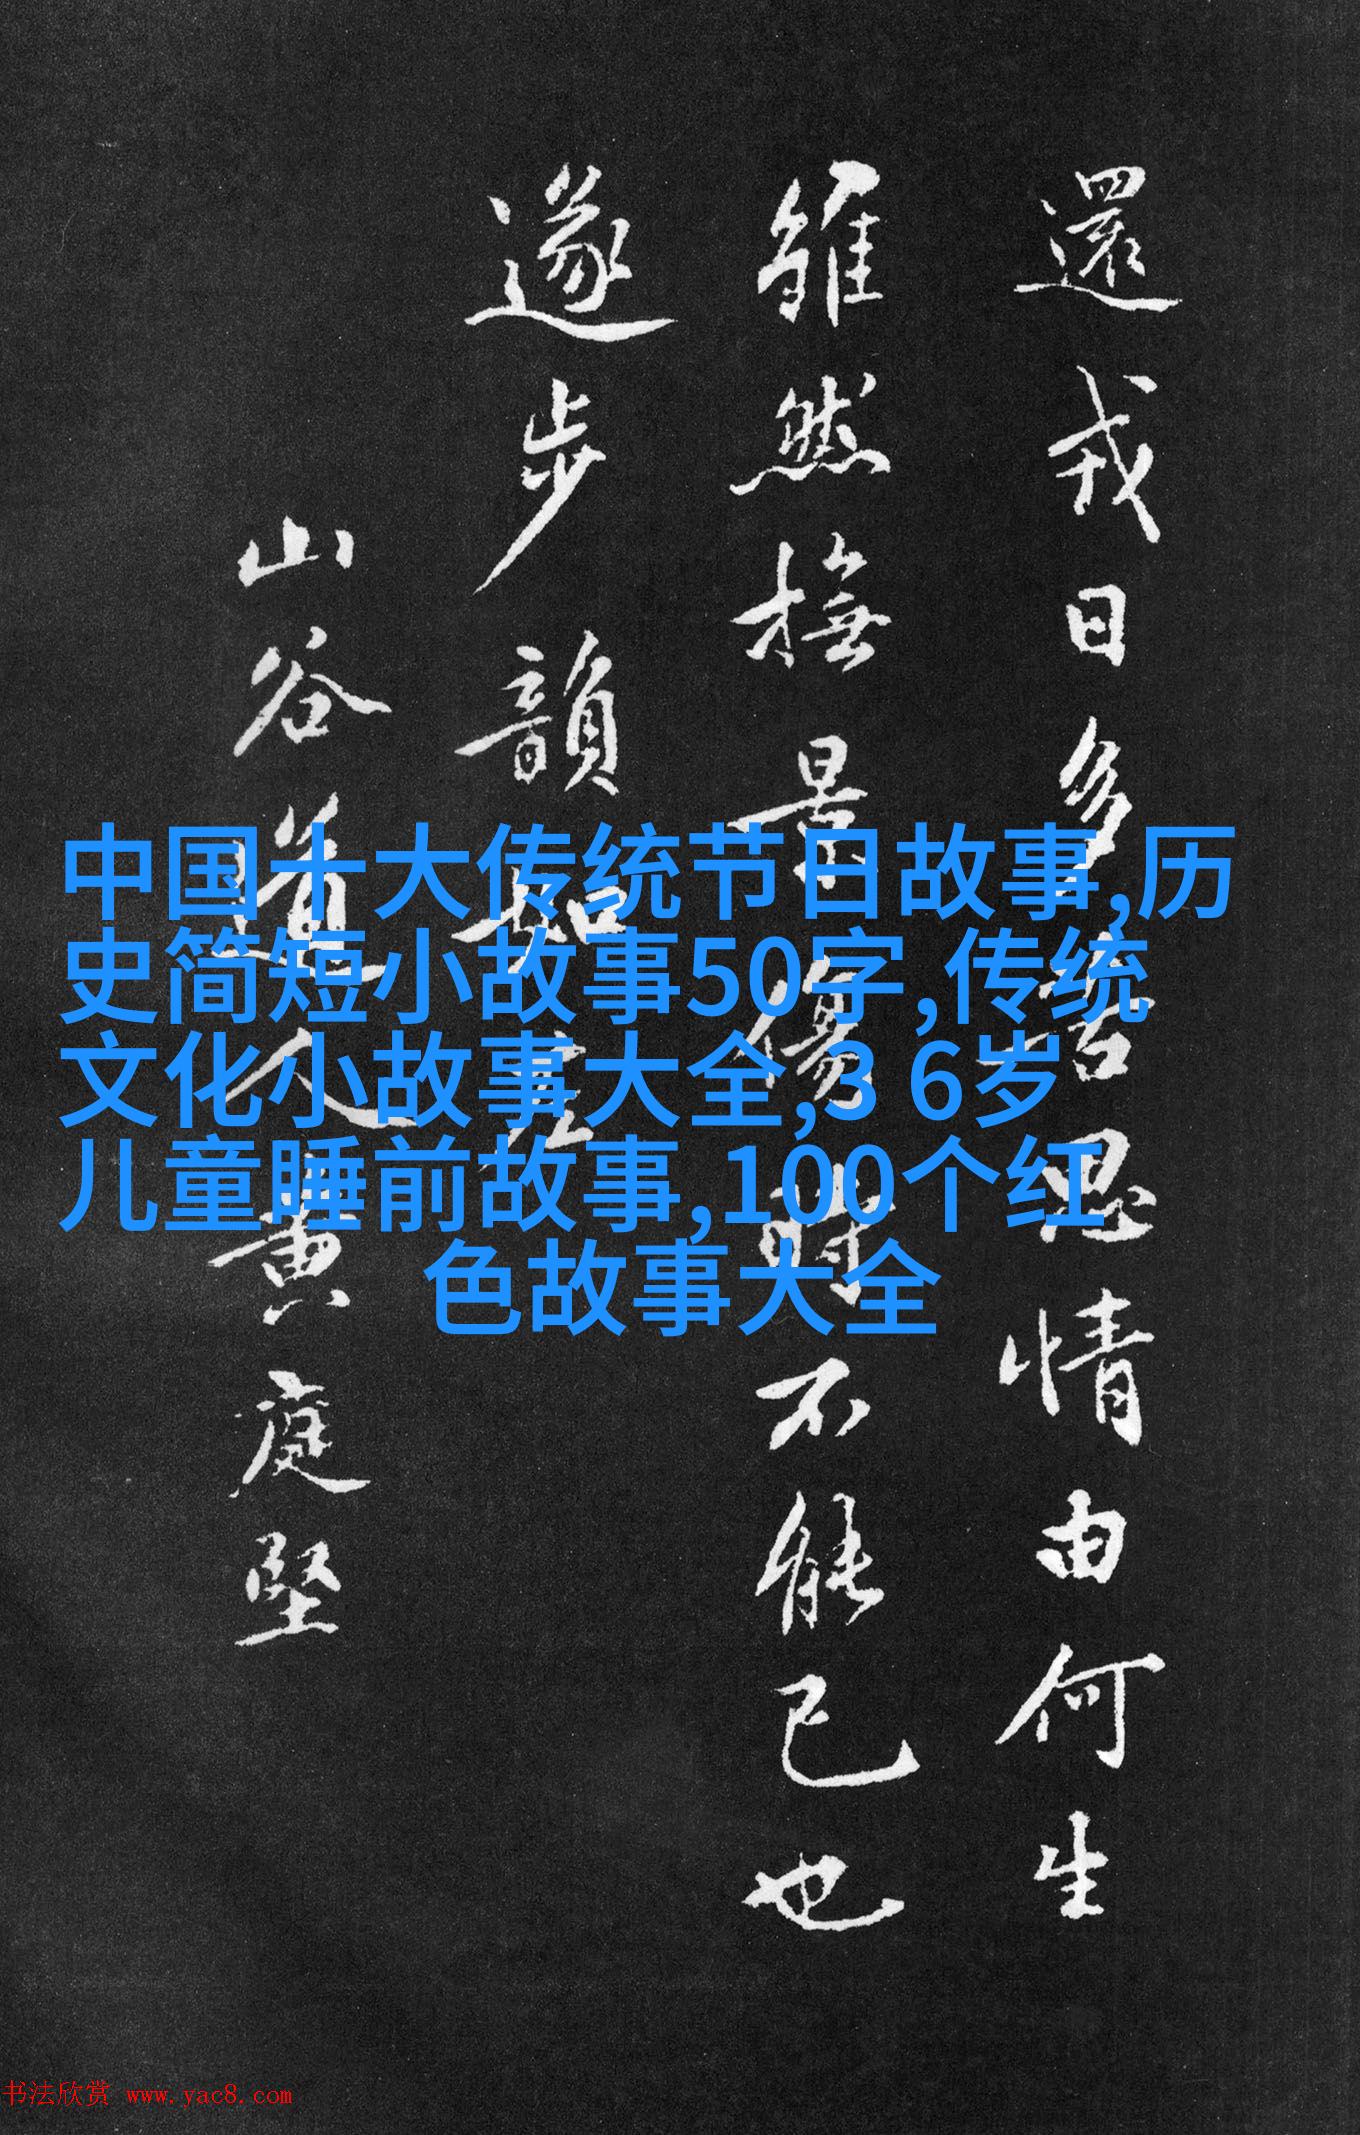 還戎日多苦思情由何生
雖然撫景傷時不能已也
遂步韻如左
山谷道人黃庭堅
中国十大传统节日故事,历
史简短小故事50字,传统
文化小故事大全,3 6岁
儿童睡前故事,100个红
色故事大全
书法欣赏 www.yac8.com